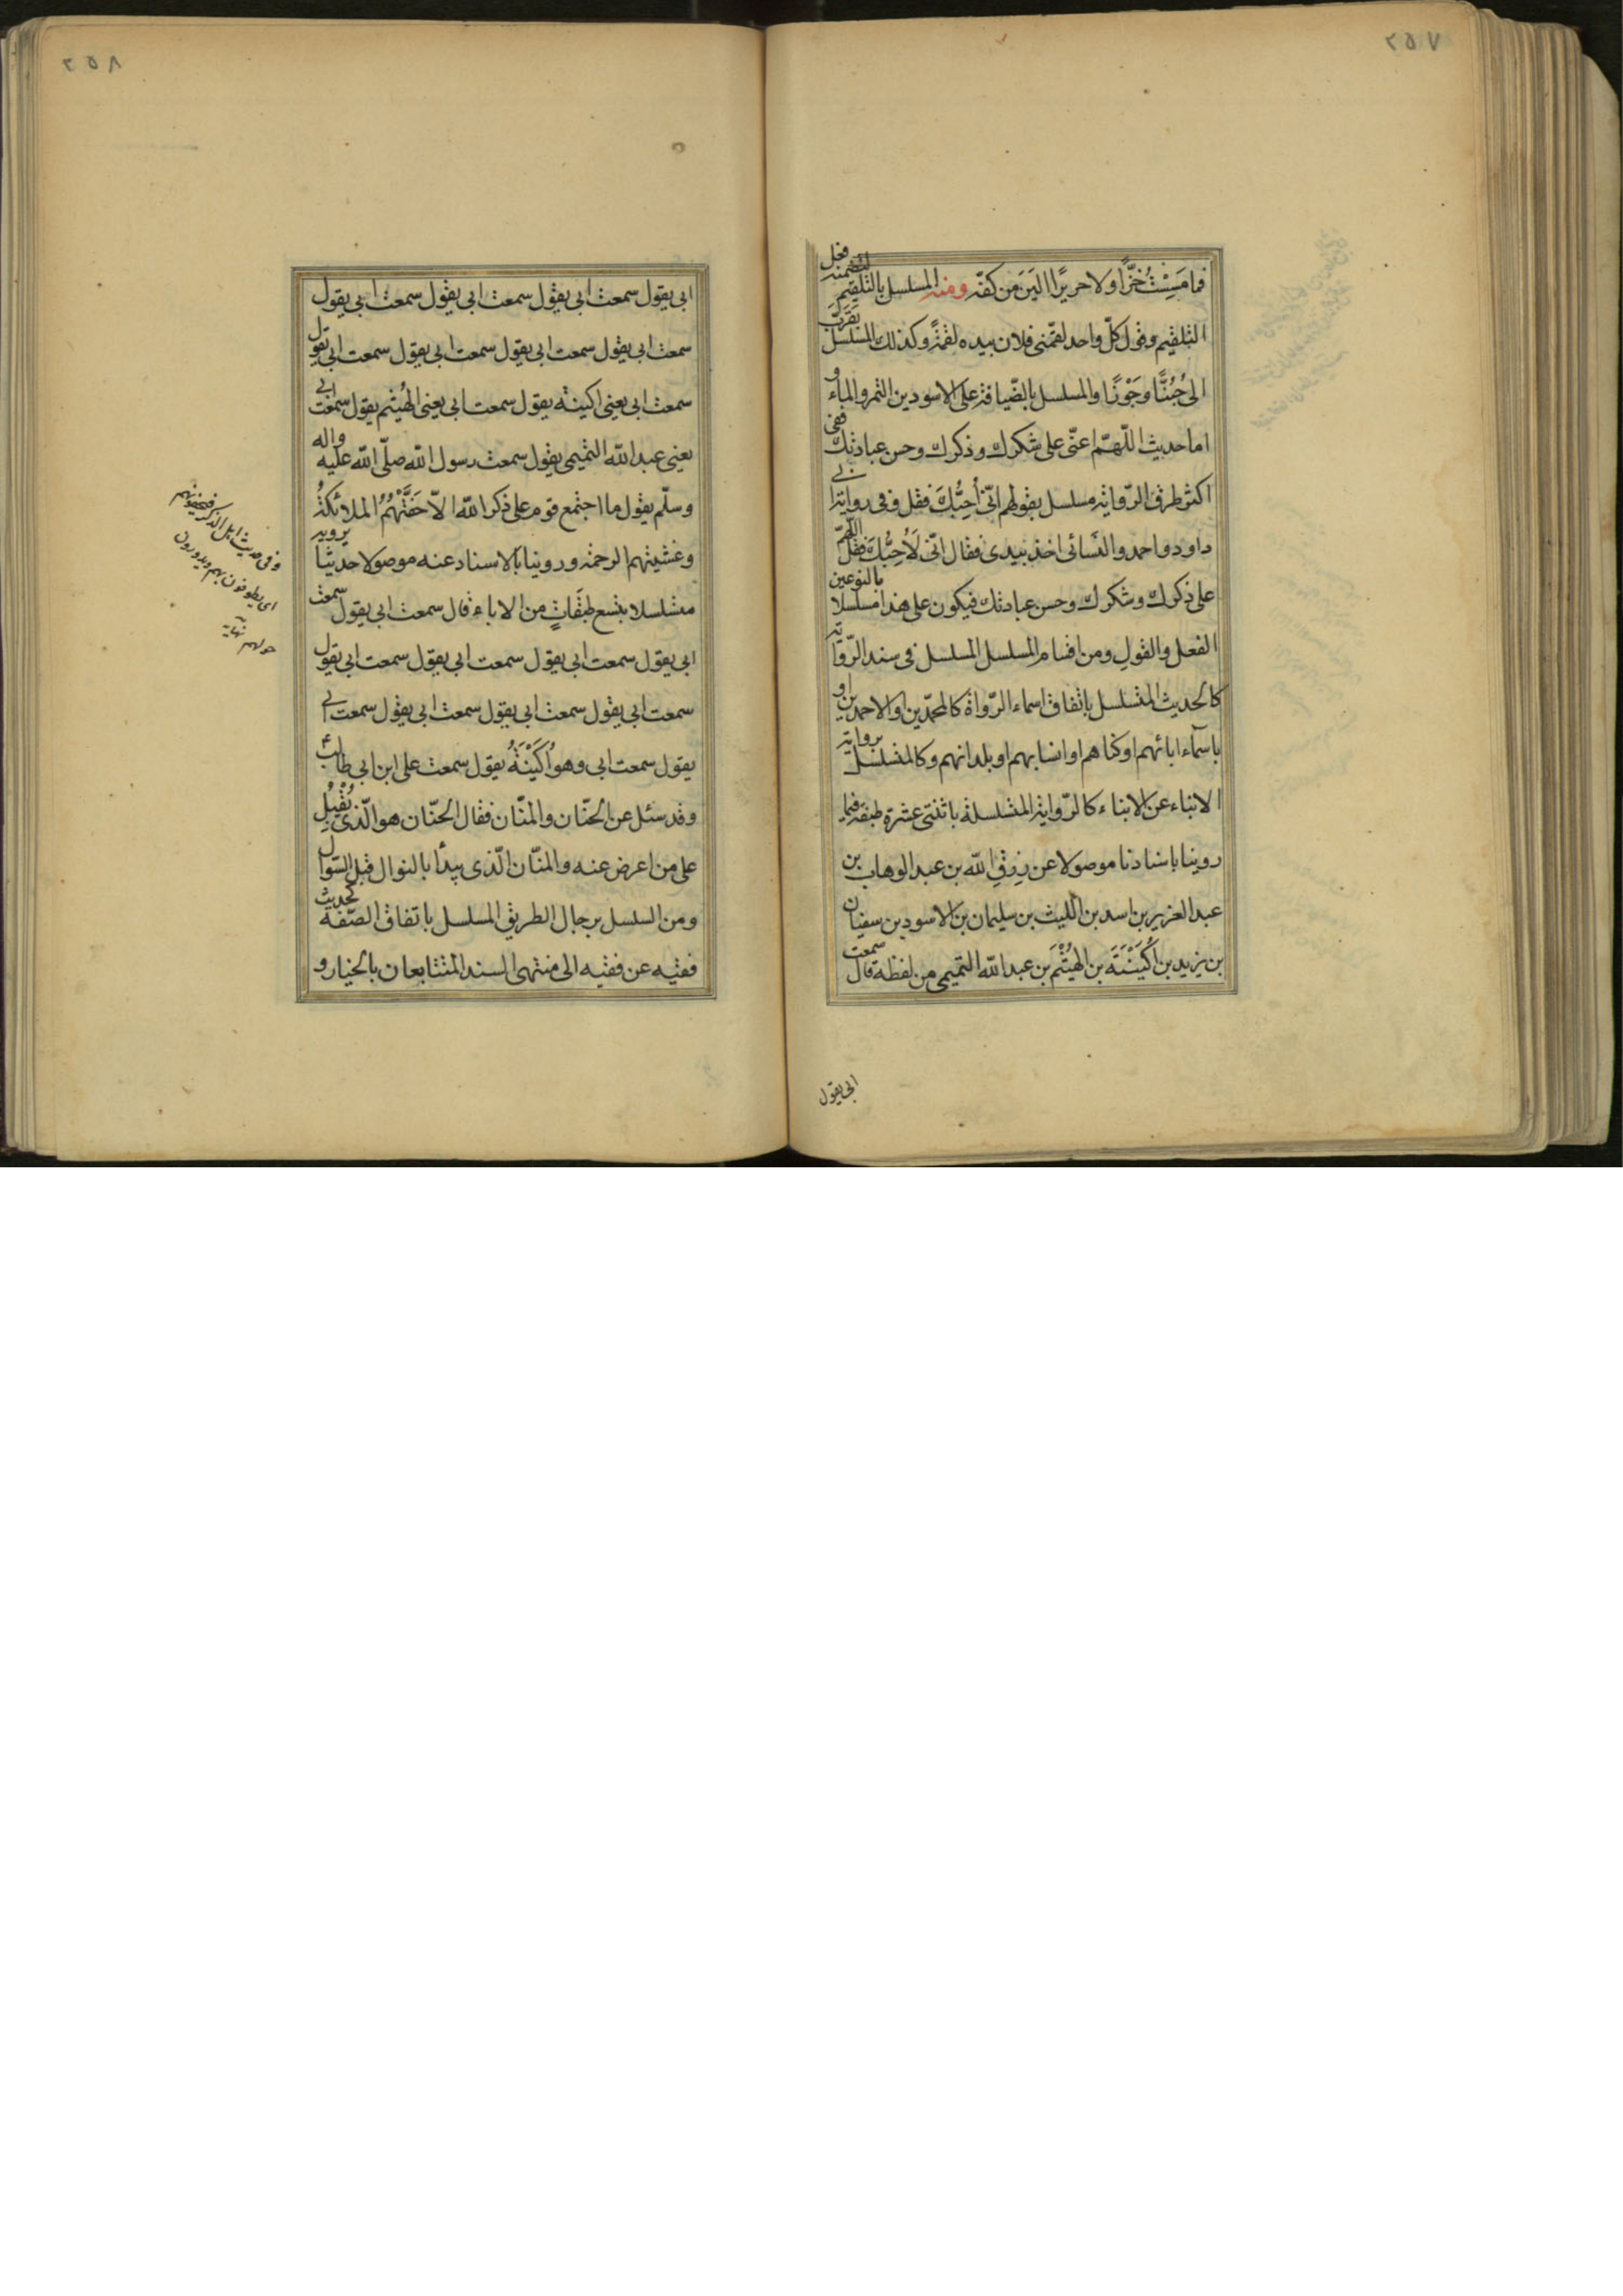 ٢٥٧
فما مسست خزّا ولا حريرًا الين من كفّه ومنه المسلسل بالتلقيم لتضمنه فعل
التلقيم وقول كلّ واحد لقمّنى فلان بيده لقمةً وكذلك المسلسل بقرّب
الى جُبُنًّا وجَوْزًا والمسلسل بالضّيافة على الاسودين التمر والماء و
اما حديث اللّهمّ اعنّى على شكرك وذكرك وحسن عبادتك ففى
اكثر طرق الرّواية مسلسل بقولهم انّى أُحِبُّكَ فقل وفى رواية ابى
داود واحمد والنسائى اخذ بيدى فقال انّى لَأُحِبُّكَ فقل اللّهمّ
على ذكرك وشكرك وحسن عبادتك فيكون على هذا مسلسلا بالنوعين
الفعل والقول ومن اقسام المسلسل المسلسل فى سند الرّواية
كالحديث المتسلسل باتفاق اسماء الرّواة كالمحمّدين او الاحمدين او
باسمآء ابائهم او كناهم او انسابهم او بلدانهم وكالمتسلسل برواية
الابناء عن الابناء كالرّواية المتسلسلة باثنتى عشرة طبقة فيما
روينا باسنادنا موصولا عن رزق الله بن عبد الوهاب بن
عبد العزيز بن اسد بن الليث بن سليمان بن الاسود بن سفيان
بن يزيد بن اُكَيْنَةَ بن الهَيْثَم بن عبد الله التميمى من لفظه قال سمعت
ابى يقول
٢٥٨
ابى يقول سمعت ابى يقول سمعت ابى يقول سمعت ابى يقول
سمعت ابى يقول سمعت ابى يقول سمعت ابى يقول سمعت ابى يقول
سمعت ابى يعنى اكينة يقول سمعت ابى يعنى الهيثم يقول سمعت ابى
يعنى عبد الله التميمى يقول سمعت رسول الله صلّى الله عليه واله
وسلّم يقول ما اجتمع قوم على ذكر الله الاّ حَفَّتْهُمُ الملائكةُ
وغشيتهم الرحمة وروينا بالاسناد عنه موصولا حديثا يرويه
متسلسلا بتسع طبقاتٍ من الاباء قال سمعت ابى يقول سمعت
ابى يقول سمعت ابى يقول سمعت ابى يقول سمعت ابى يقول
سمعت ابى يقول سمعت ابى يقول سمعت ابى يقول سمعت ابى
يقول سمعت ابى وهو اُكَيْنَةُ يقول سمعت على ابن ابى طالب
وقد سئل عن الحنّان والمنّان فقال الحنّان هو الّذى يُقْبِلُ
على من اعرض عنه والمنّان الّذى يبدأ بالنوال قبل السّوال
ومن السلسل برجال الطريق المسلسل باتفاق الصّفة كحديث
فقيه عن فقيه الى منتهى السند المتتابعان بالخيار و
وفى حديث اهل الذكر فيحفونهم
اى يطوفون بهم ويدورون
حولهم نهاية